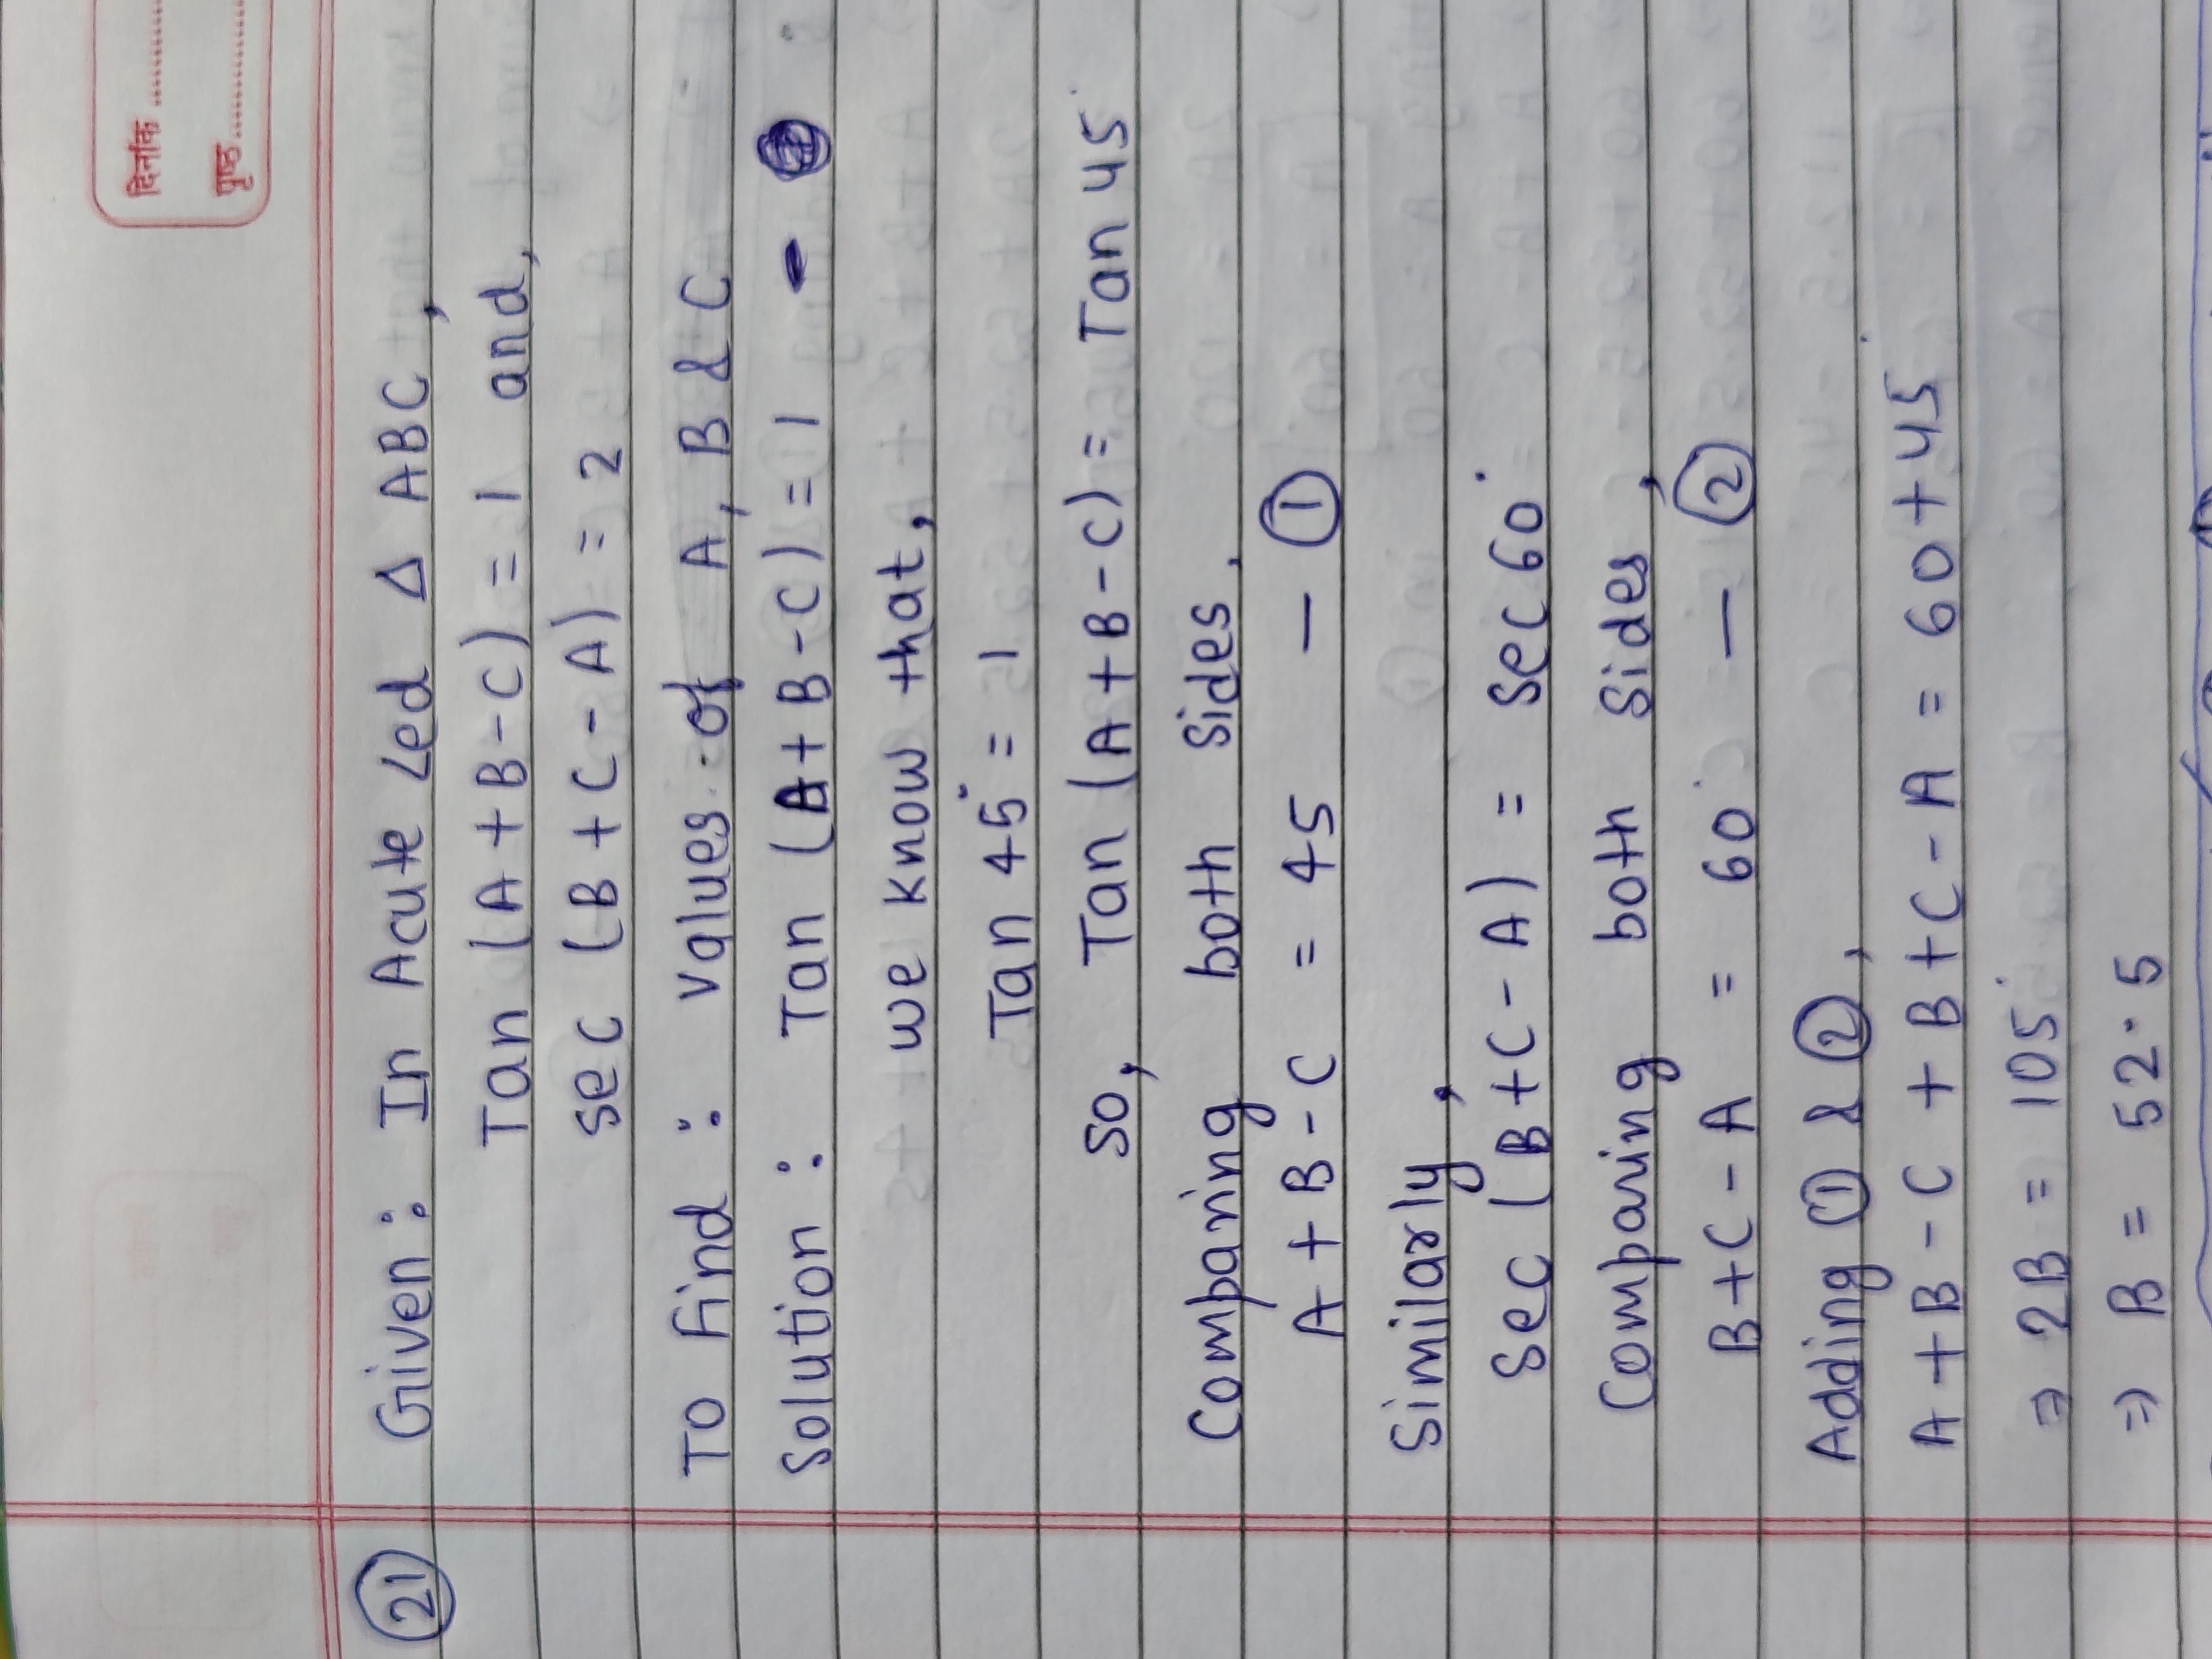 दिनांक ..........
पृष्ठ ..........
21 Given : In Acute ∠ed Δ ABC,
Tan (A + B - C) = 1 and,
sec (B + C - A) = 2
To find : values of A, B & C
Solution : Tan (A + B - C) = 1 -
we know that,
Tan 45° = 1
so, Tan (A + B - C) = Tan 45°
Comparing both sides,
A + B - C = 45 — ①
Similarly,
Sec (B + C - A) = Sec 60°
Comparing both Sides,
B + C - A = 60 — ②
Adding ① & ②,
A + B - C + B + C - A = 60 + 45
⇒ 2B = 105
⇒ B = 52.5